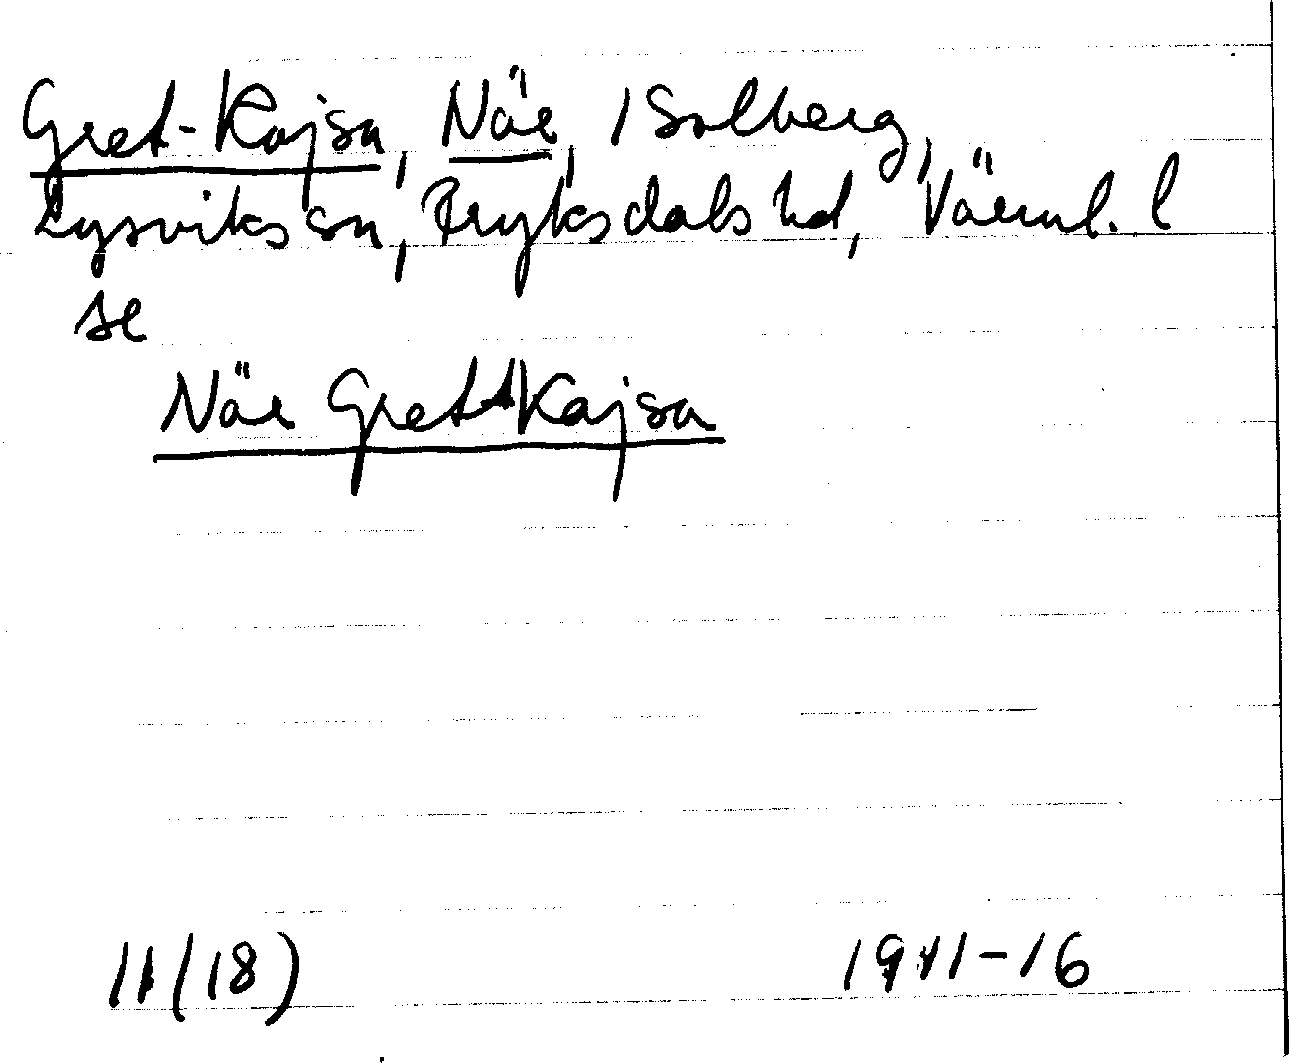 Gret-Kajsa, Näe, 1 Solberg,
Lysviks sn, Fryksdals hd, Värml. l
se
Näe Gret-Kajsa
11(18) 1911-16